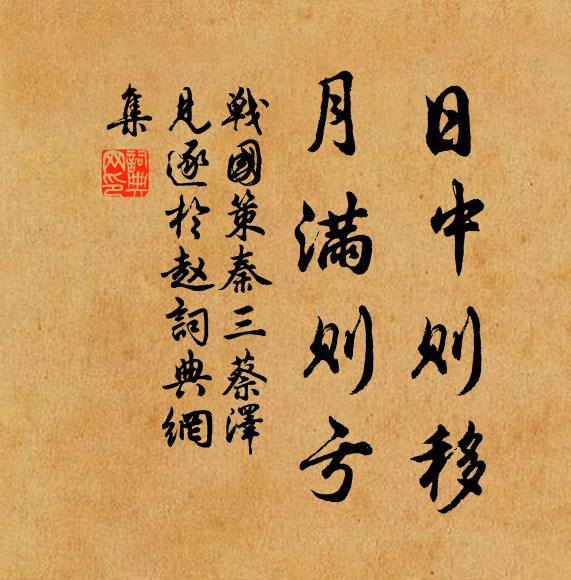 日中则移
月满则亏
戰國策秦三蔡澤
見逐於赵詞典網
集
詞典
网印